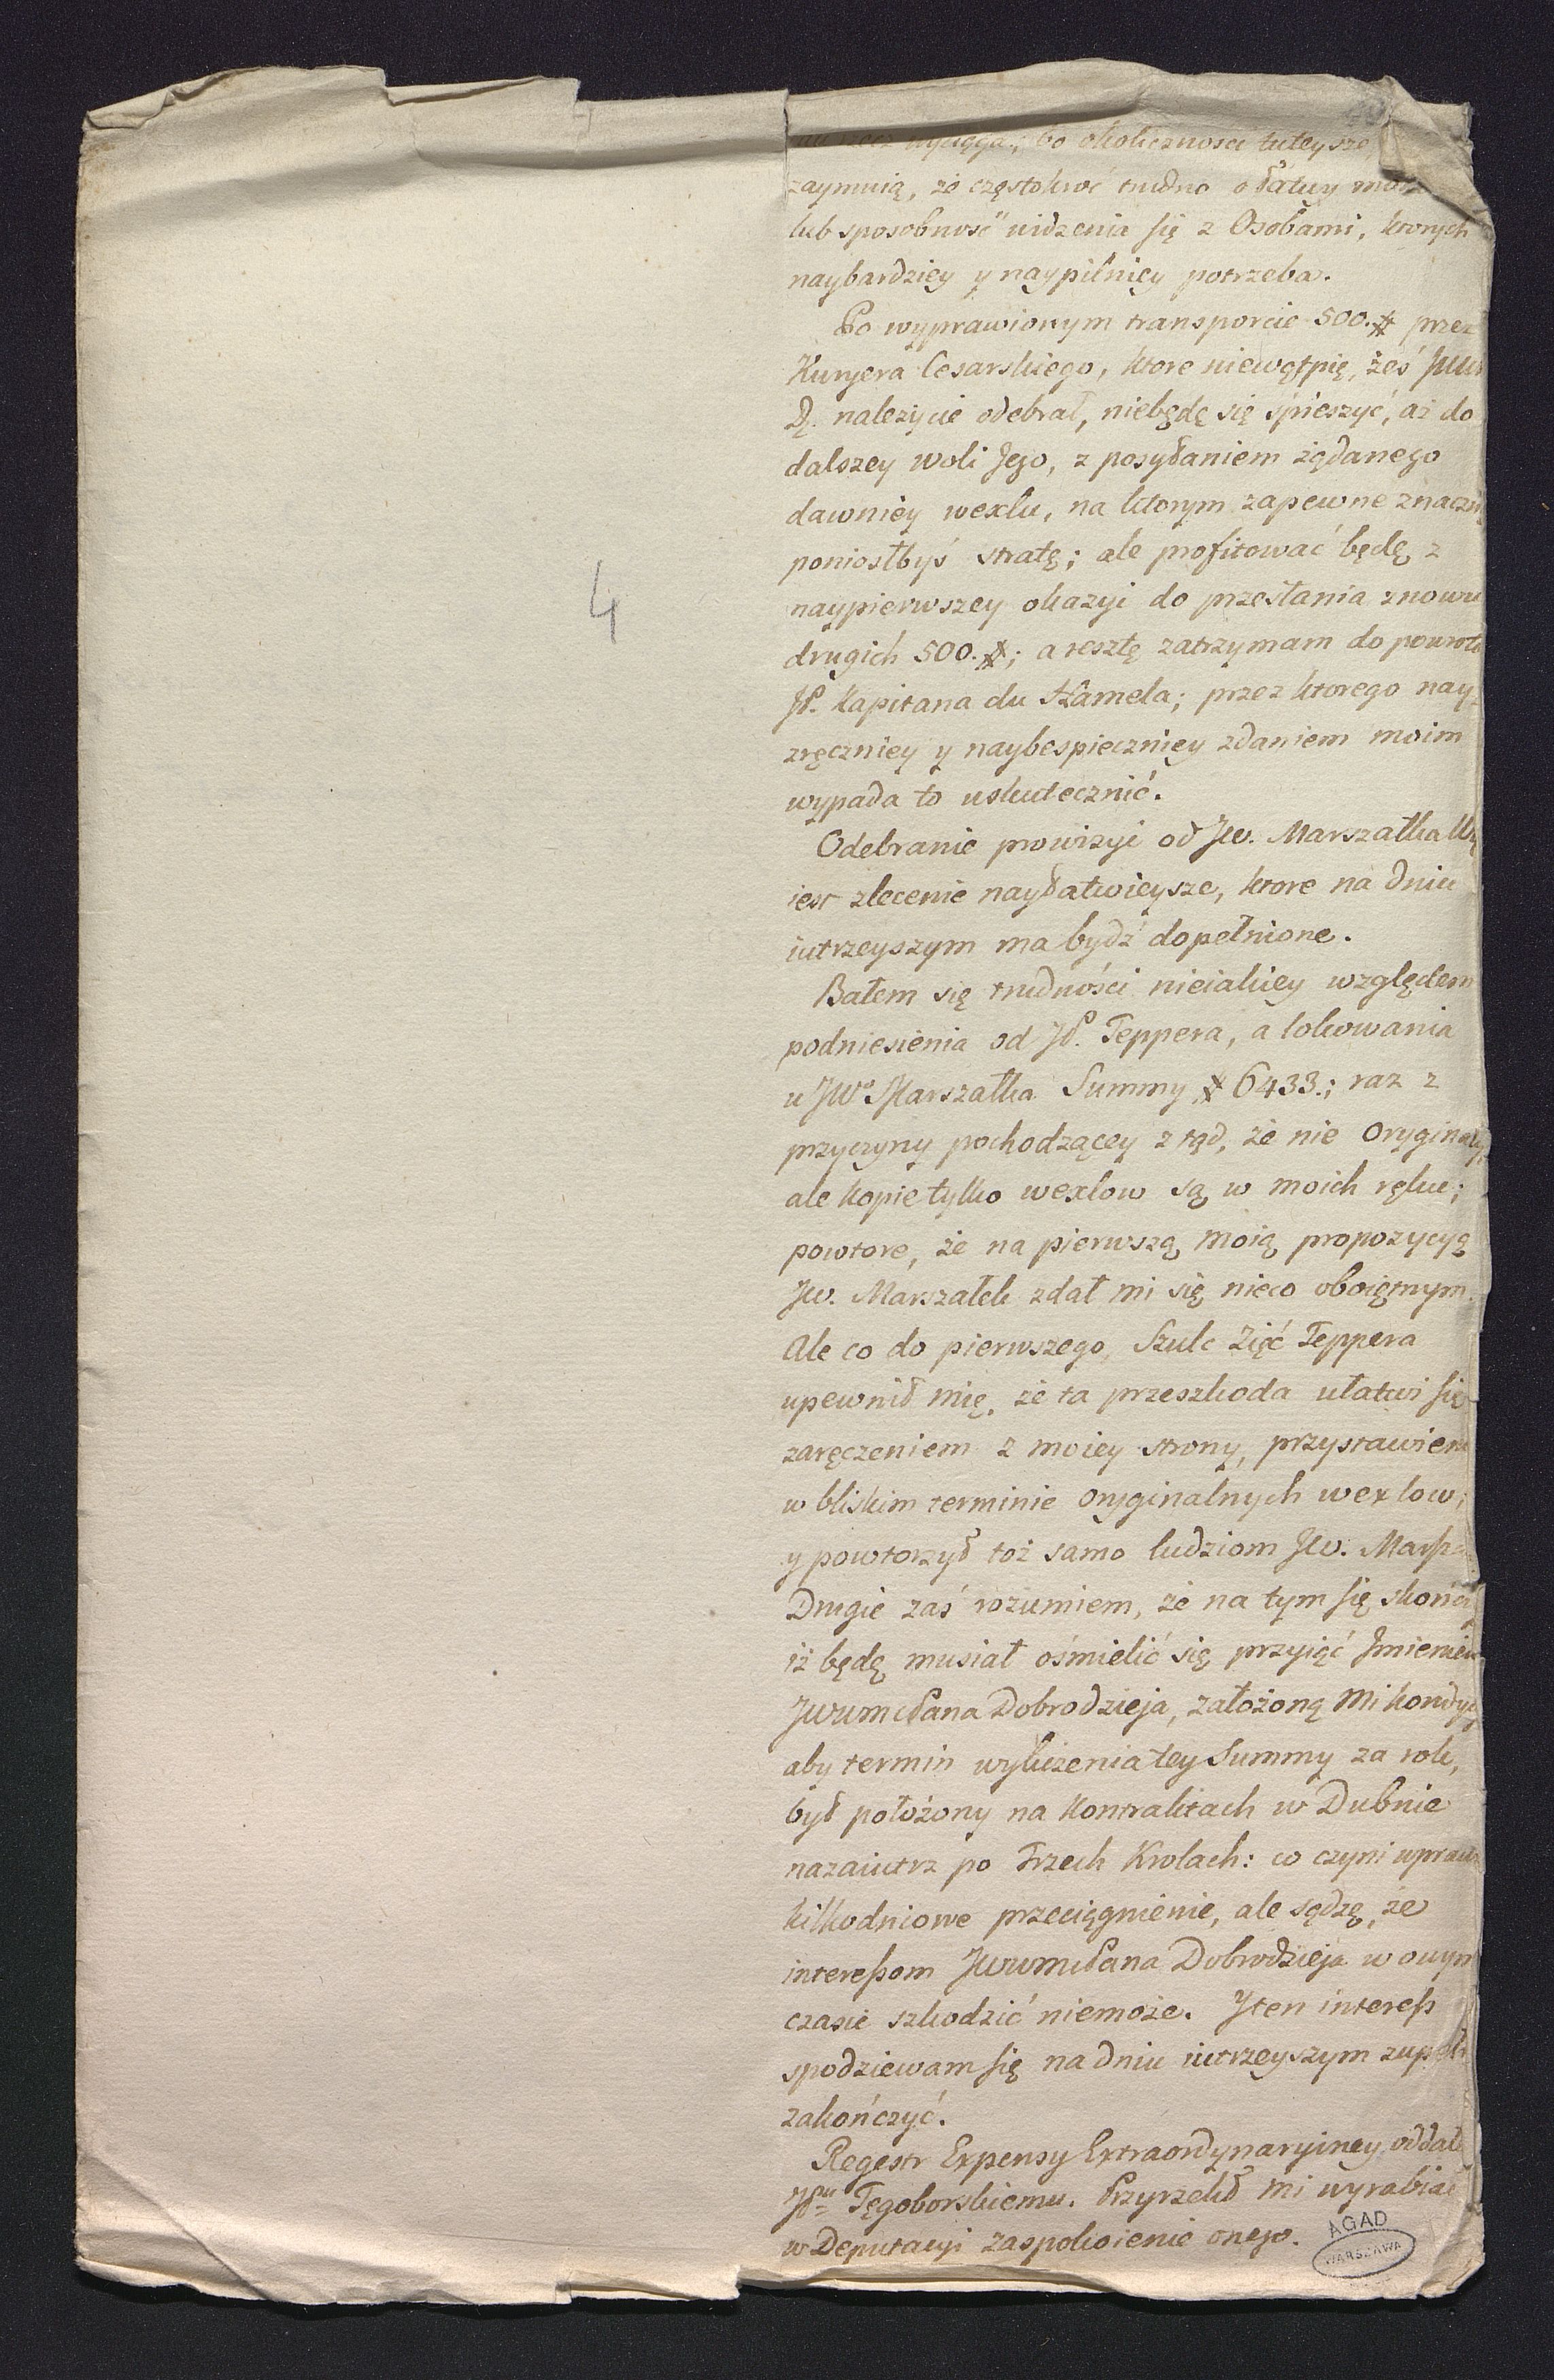 rzecz wyciąga; bo okoliczności tuteysze
zaymuią, że częstokroć trudno o łatwy
lub sposobność widzenia się z Osobami, ktorych
naybardziey y naypilniey potrzeba.
Po wyprawionym transporcie 500.# przez
Kuryera Cesarskiego, ktore niewątpię, żeś JWW
D. należycie odebrał, niebędę się śpieszyć, aż do
dalszey woli Jego, z posyłaniem żądanego
dawniey wexlu, na ktorym zapewne znaczną
poniosłbyś stratę; ale profitować będę z
naypierwszey okazyi do przesłania znowu
drugich 500.#; a resztę zatrzymam do powrotu
JP. Kapitana du Hamela; przez ktorego nay=
zręczniey y naybespieczniey zdaniem moim
wypada to uskutecznić.
Odebranie prowizyi od JW. Marszałka
iest zlecenie nayłatwieysze, ktore na dniu
iutrzeyszym ma bydź dopełnione.
Bałem się trudności nieiakiey względem
podniesienia od JP. Teppera, a lokowania
u JWo Marszałka Summy # 6433.; raz z
przyczyny pochodzącey ztąd, że nie Oryginały,
ale kopie tylko wexlow są w moich ręku;
powtore, że na pierwszą moią propozycyą
JW. Marszałek zdał mi się nieco oboiętnym.
Ale co do pierwszego, Szulc Zięć Teppera
upewnił mię, że ta przeszkoda ułatwi się
zaręczeniem z moiey strony, przystawien
w bliskim terminie oryginalnych wexlow;
y powtorzył toż samo ludziom JW. Marsza
Drugie zaś rozumiem, że na tym się skończy,
iż będę musiał ośmielić się przyiąć Jmieniem
JWWmcPana Dobrodzieja, założoną mi kondycyą
aby termin wyliczenia tey Summy za rok,
był położony na Kontraktach w Dubnie
nazaiutrz po Trzech Krolach: co czyni wpraw
kilkodniowe przeciągnienie, ale sądzę, że
interessom JWWmcPana Dobrodzieja w owym
czasie szkodzić niemoże. Y ten interess
spodziewam się na dniu iutrzeyszym zupeł
zakończyć.
Regestr Expensy Extraordynaryiney oddał
JPu Tęgoborskiemu. Przyrzekł mi wyrabiać
w Deputacyi zaspokoienie onego.
AGAD
WARSZAWA
4